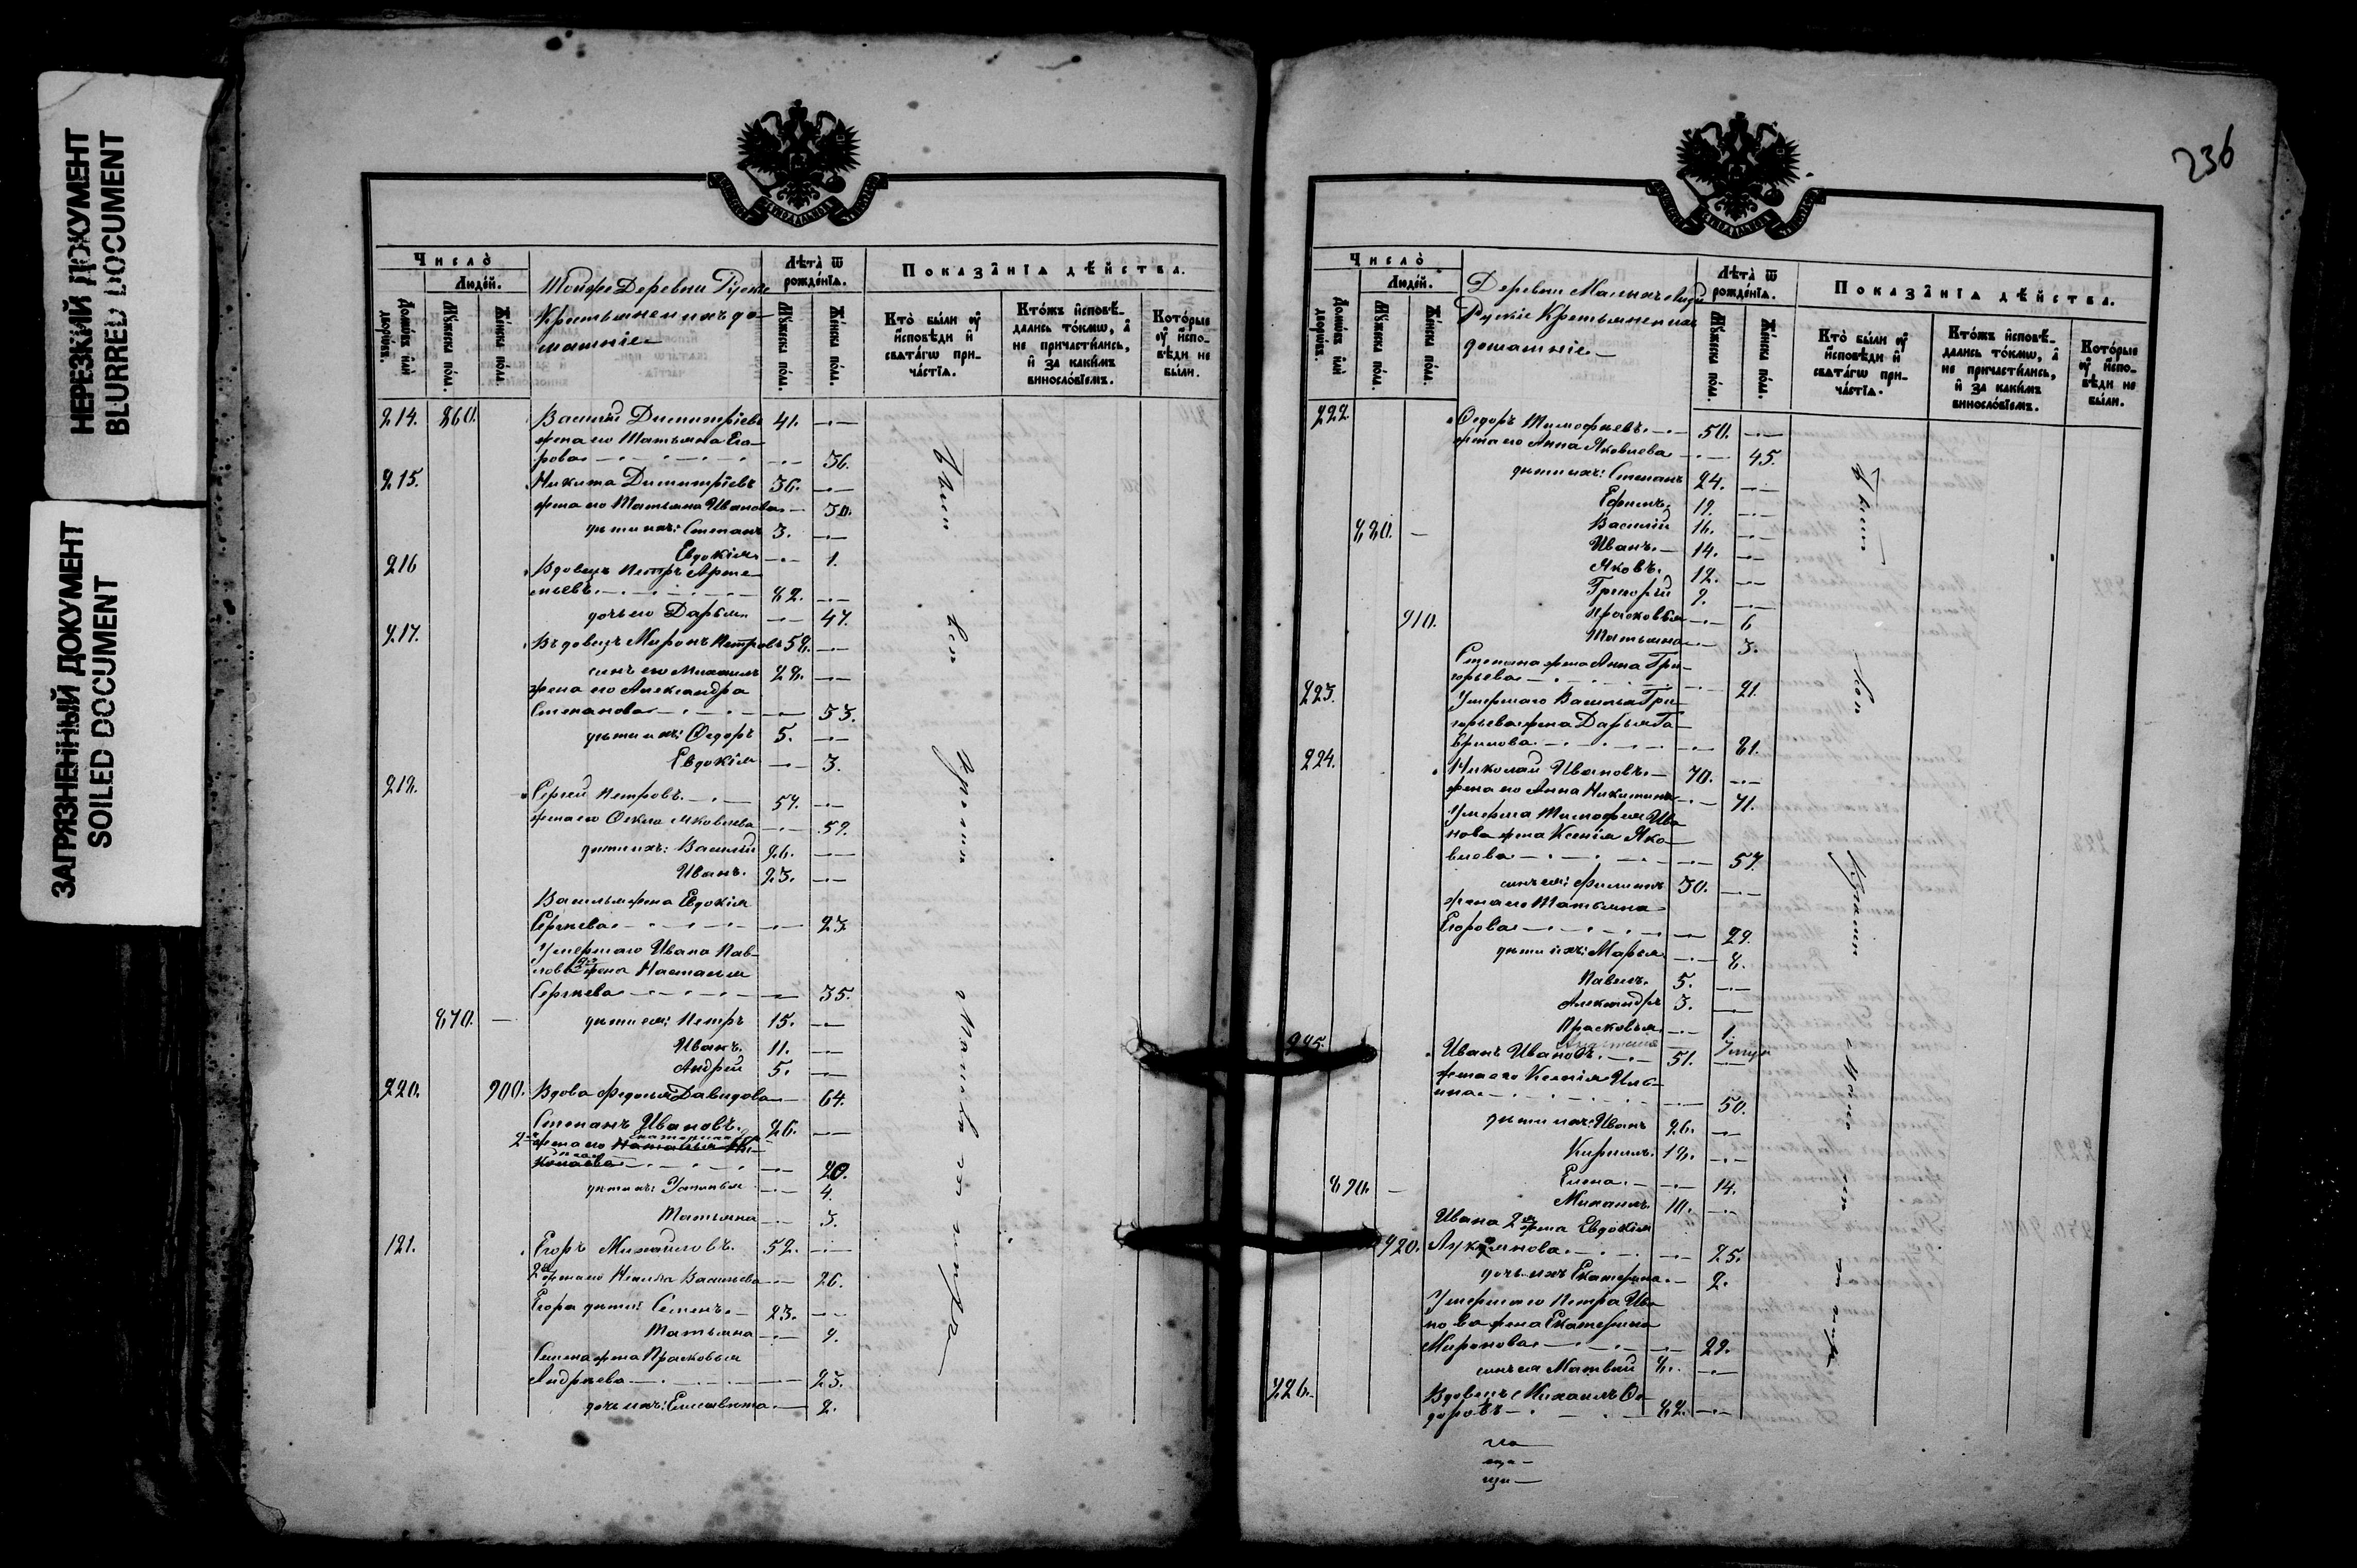 НЕРЕЗКИЙ ДОКУМЕНТ
BLURRED DOCUMENT
ЗАГРЯЗНЕННЫЙ ДОКУМЕНТ
SOILED DOCUMENT
Число̀
Людéй.
Домѡ́въ илѝ дворѡ́въ.
Мꙋ́жеска пóла.
Жéнска пóла.
Тойже Деревни Руские
Крестьяне и ихъ до-
машние
Лѣта̀ ѿ рождéнїѧ.
Мꙋ́жеска пóла.
Жéнска пóла.
Показа̂нїѧ дѣ́йства.
Кто̀ бы́ли ᲂу҆ и҆сповѣди и҆ свѧта́гѡ при-ча́стїѧ.
Кто́жъ и҆сповѣ́-дались то́кмѡ, а҆ не причасти́лись, и҆ за каки́мъ винослóвїемъ.
Кото́рые ᲂу҆ и҆спо-вѣди не бы́ли.
214. 860. Василий Димитріевъ 41.
жена его Татьяна Его-
рова 36.
215. Никита Димитріевъ 36.
жена его Татьяна Иванова 30.
дѣти ихъ: Степанъ 3.
Евдокія 1.
216 Вдовецъ Петръ Арте-
мьевъ 82.
дочь его Дарья 47.
217. Вдовецъ Миронъ Петровъ 58.
сынъ его Михаилъ 28.
жена его Александра
Степанова 33.
дѣти ихъ: Ѳедоръ 5.
Евдокія 3.
218. Сергей Петровъ 57.
жена его Ѳекла Яковлева 59.
дѣти ихъ: Василий 26.
Иванъ. 23.
Василья жена Евдокія
Сергѣева 23
Умершаго Ивана Пав-
лова жена Наталья
Сергѣева 35.
870. дѣти ея: Петръ 15.
Иванъ. 11.
Андрей 5.
220. 900. Вдова Федосья Давидова 64.
Степанъ Ивановъ. 26.
2я жена его
20.
дѣти ихъ: Устинья 4.
Татьяна 3.
121. Егоръ Михайловъ. 52.
2я жена его Васильева 26.
Егора дѣти: Семенъ. 23.
Татьяна 9.
Семена жена Прасковья
Андреева 23.
дочь ихъ: Елисавета 2.
Были
Кон
Крести
236
Число̀
Людéй.
Домѡ́въ илѝ дворѡ́въ.
Мꙋ́жеска пóла.
Жéнска пóла.
Деревни
Руские Крестьяне и ихъ
домашние
Лѣта̀ ѿ рождéнїѧ.
Мꙋ́жеска пóла.
Жéнска пóла.
Показа̂нїѧ дѣ́йства.
Кто̀ бы́ли ᲂу҆ и҆сповѣди и҆ свѧта́гѡ при-ча́стїѧ.
Кто́жъ и҆сповѣ́-дались то́кмѡ, а҆ не причасти́лись, и҆ за каки́мъ винослóвїемъ.
Кото́рые ᲂу҆ и҆спо-вѣди не бы́ли.
222 Ѳедоръ Тимофеевъ. 50.
жена его Анна Яковлева 45.
дѣти ихъ: Степанъ 24.
Ефимъ. 19.
880. Василий 16.
Иванъ. 14.
Яковъ. 12.
Григорій 9.
910. Прасковья 6
Татьяна 3.
Степана жена Анна Гри-
горьева 21.
223. Умершаго Василья Гри-
горьева жена Дарья Га-
врилова 81.
224. Николай Ивановъ. 70.
жена его Анна Никитина 71.
Умерша Тимофея Ива
нова жена Ксенія Яко-
влева 57.
сынъ ея: Филиппъ 30.
жена его Татьяна
Егорова 29.
дѣти ихъ: Марья 8.
Павелъ. 5.
Александръ 3.
Прасковья 1.
225. Иванъ Ивановъ. 51.
жена его Ксенія Иль-
ина 50.
дѣти ихъ: Иванъ 26.
Кириллъ. 18.
890. Елена. 14.
Михаилъ. 10.
Ивана 2й жена Евдокія
920. Лукьянова. 25.
дочь ихъ Екатерина. 2.
Умершаго Петра Ива
нова жена Екатерина
Миронова 29.
сынъ ея Матвей 8.
226. Вдовецъ Михаилъ Ѳе-
доровъ 82.
Были
Кон